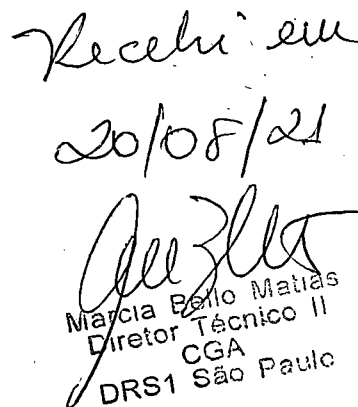 Recebi em
20/08/21
Márcia Bello Matias
Diretor Técnico II
CGA
DRS1 São Paulo